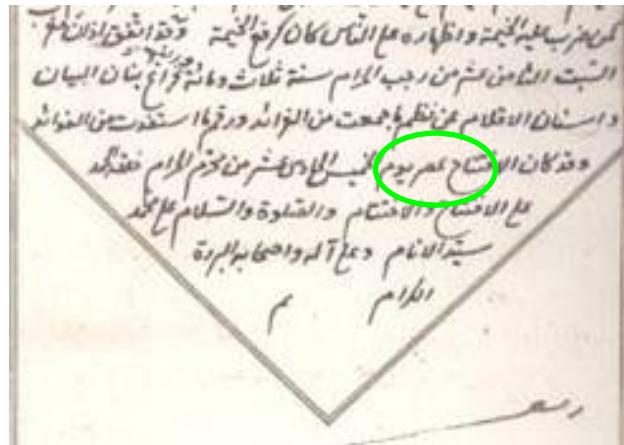 كمن ضرب عليه الخيمة واظهاره على الناس كان كرفع الخيمة وقد اتفق اذ ذاك
السبت الثامن عشر من رجب المرام سنة ثلاث ومائة فراغ بنان البيان
واسنان الاقلام عن نظم ما جمعت من الفرائد ورقم ما استفدت من الفوائد
وقد كان الافتتاح عصر يوم الخميس الحادى عشر من محرم الحرام فلله الحمد
على الافتتاح والاختتام والصلوة والسلام على محمد
سيد الانام وعلى آله واصحابه البررة
الكرام م